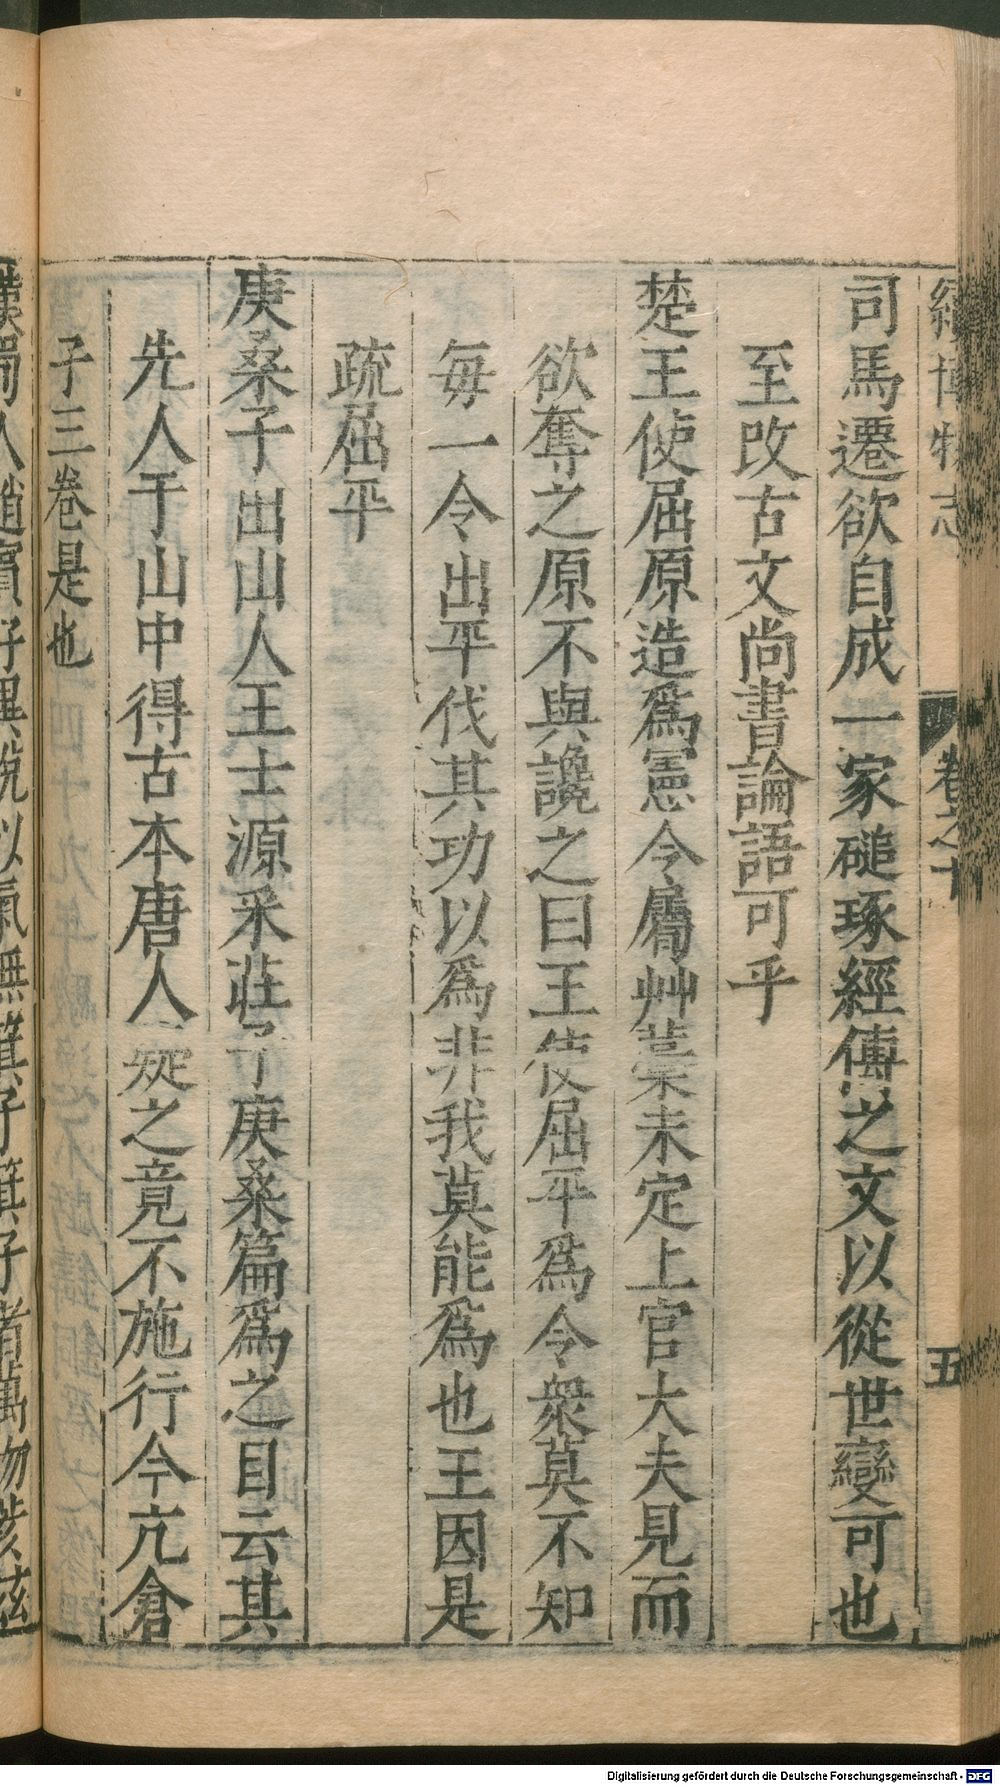 續博物志 卷之十 五
司馬遷欲自成一家磓琢經傳之文以從世變可也
至改古文尚書論語可乎
楚王使屈原造爲憲令屬艸藁未定上官大夫見而
欲奪之原不與讒之曰王使屈平爲令衆莫不知
每一令出平伐其功以爲非我莫能爲也王因是
疏屈平
庚桑子出山人王士源采莊子庚桑篇爲之目云其
先人于山中得古本唐人疑之竟不施行今亢倉
子三卷是也
人趙賓好異說以氣無箕子箕子者萬物荄茲
Digitalisierung gefördert durch die Deutsche Forschungsgemeinschaft - DFG